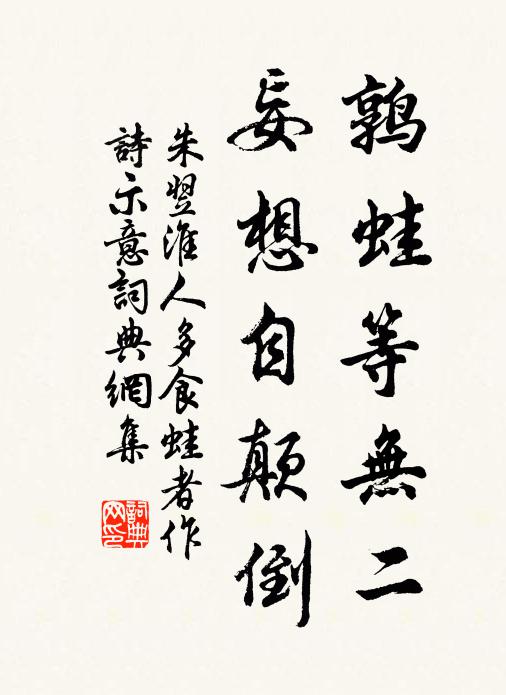 鶉蛙等無二
妄想自顛倒
朱翌淮人多食蛙者作
詩示意詞典網集
詞典网印